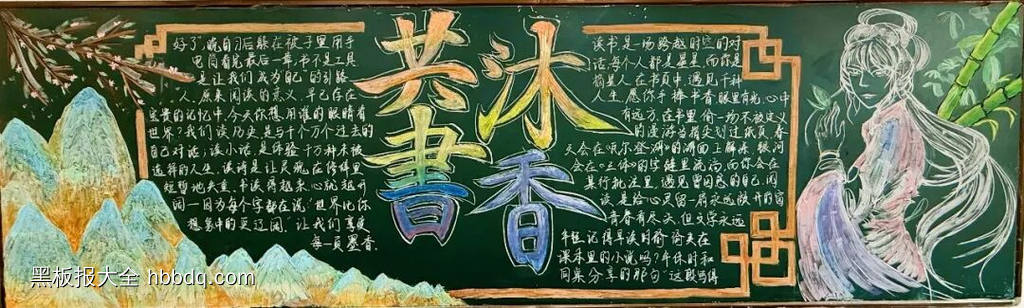 共書
沐香
好了"晚自习后躲在被子里用手
电筒看完最后一章"书不是工具
是让我们成为自己"的引路
人。原来阅读的意义早已存在
宝贵的记忆中,今天你想用谁的眼睛看
世界?我们读历史,是与千个万个过去的
自己对话,读小说,是体验千万种未被
选择的人生。读诗是让灵魂在修辞里
短暂地失重。书读得越来,心就越开
阔—因为每个字都在说"世界比你
想象中的更辽阔"让我们享受
每一页墨香。
读书,是一场跨越时空的对
话,每个人都是星星,而你是
摘星人,在书页中遇见千种
人生,愿你手捧书香,眼里有光,心中
有远方,在书里偷一场不被定义
的漫游当指尖划过纸页,春
天会在《瓦尔登湖》的湖面上解冻,银河
会在《三体》的字缝里流淌,而你会在
某行批注里,遇见曾困惑的自己,阅
读,是给心灵留一扇永远敞开的窗
青春有尽头,但文字永远
年轻,记得早读时偷偷夹在
课本里的小说吗?午休时和
同桌分享的那句"这段写得
黑板报大全 hbbdq.com